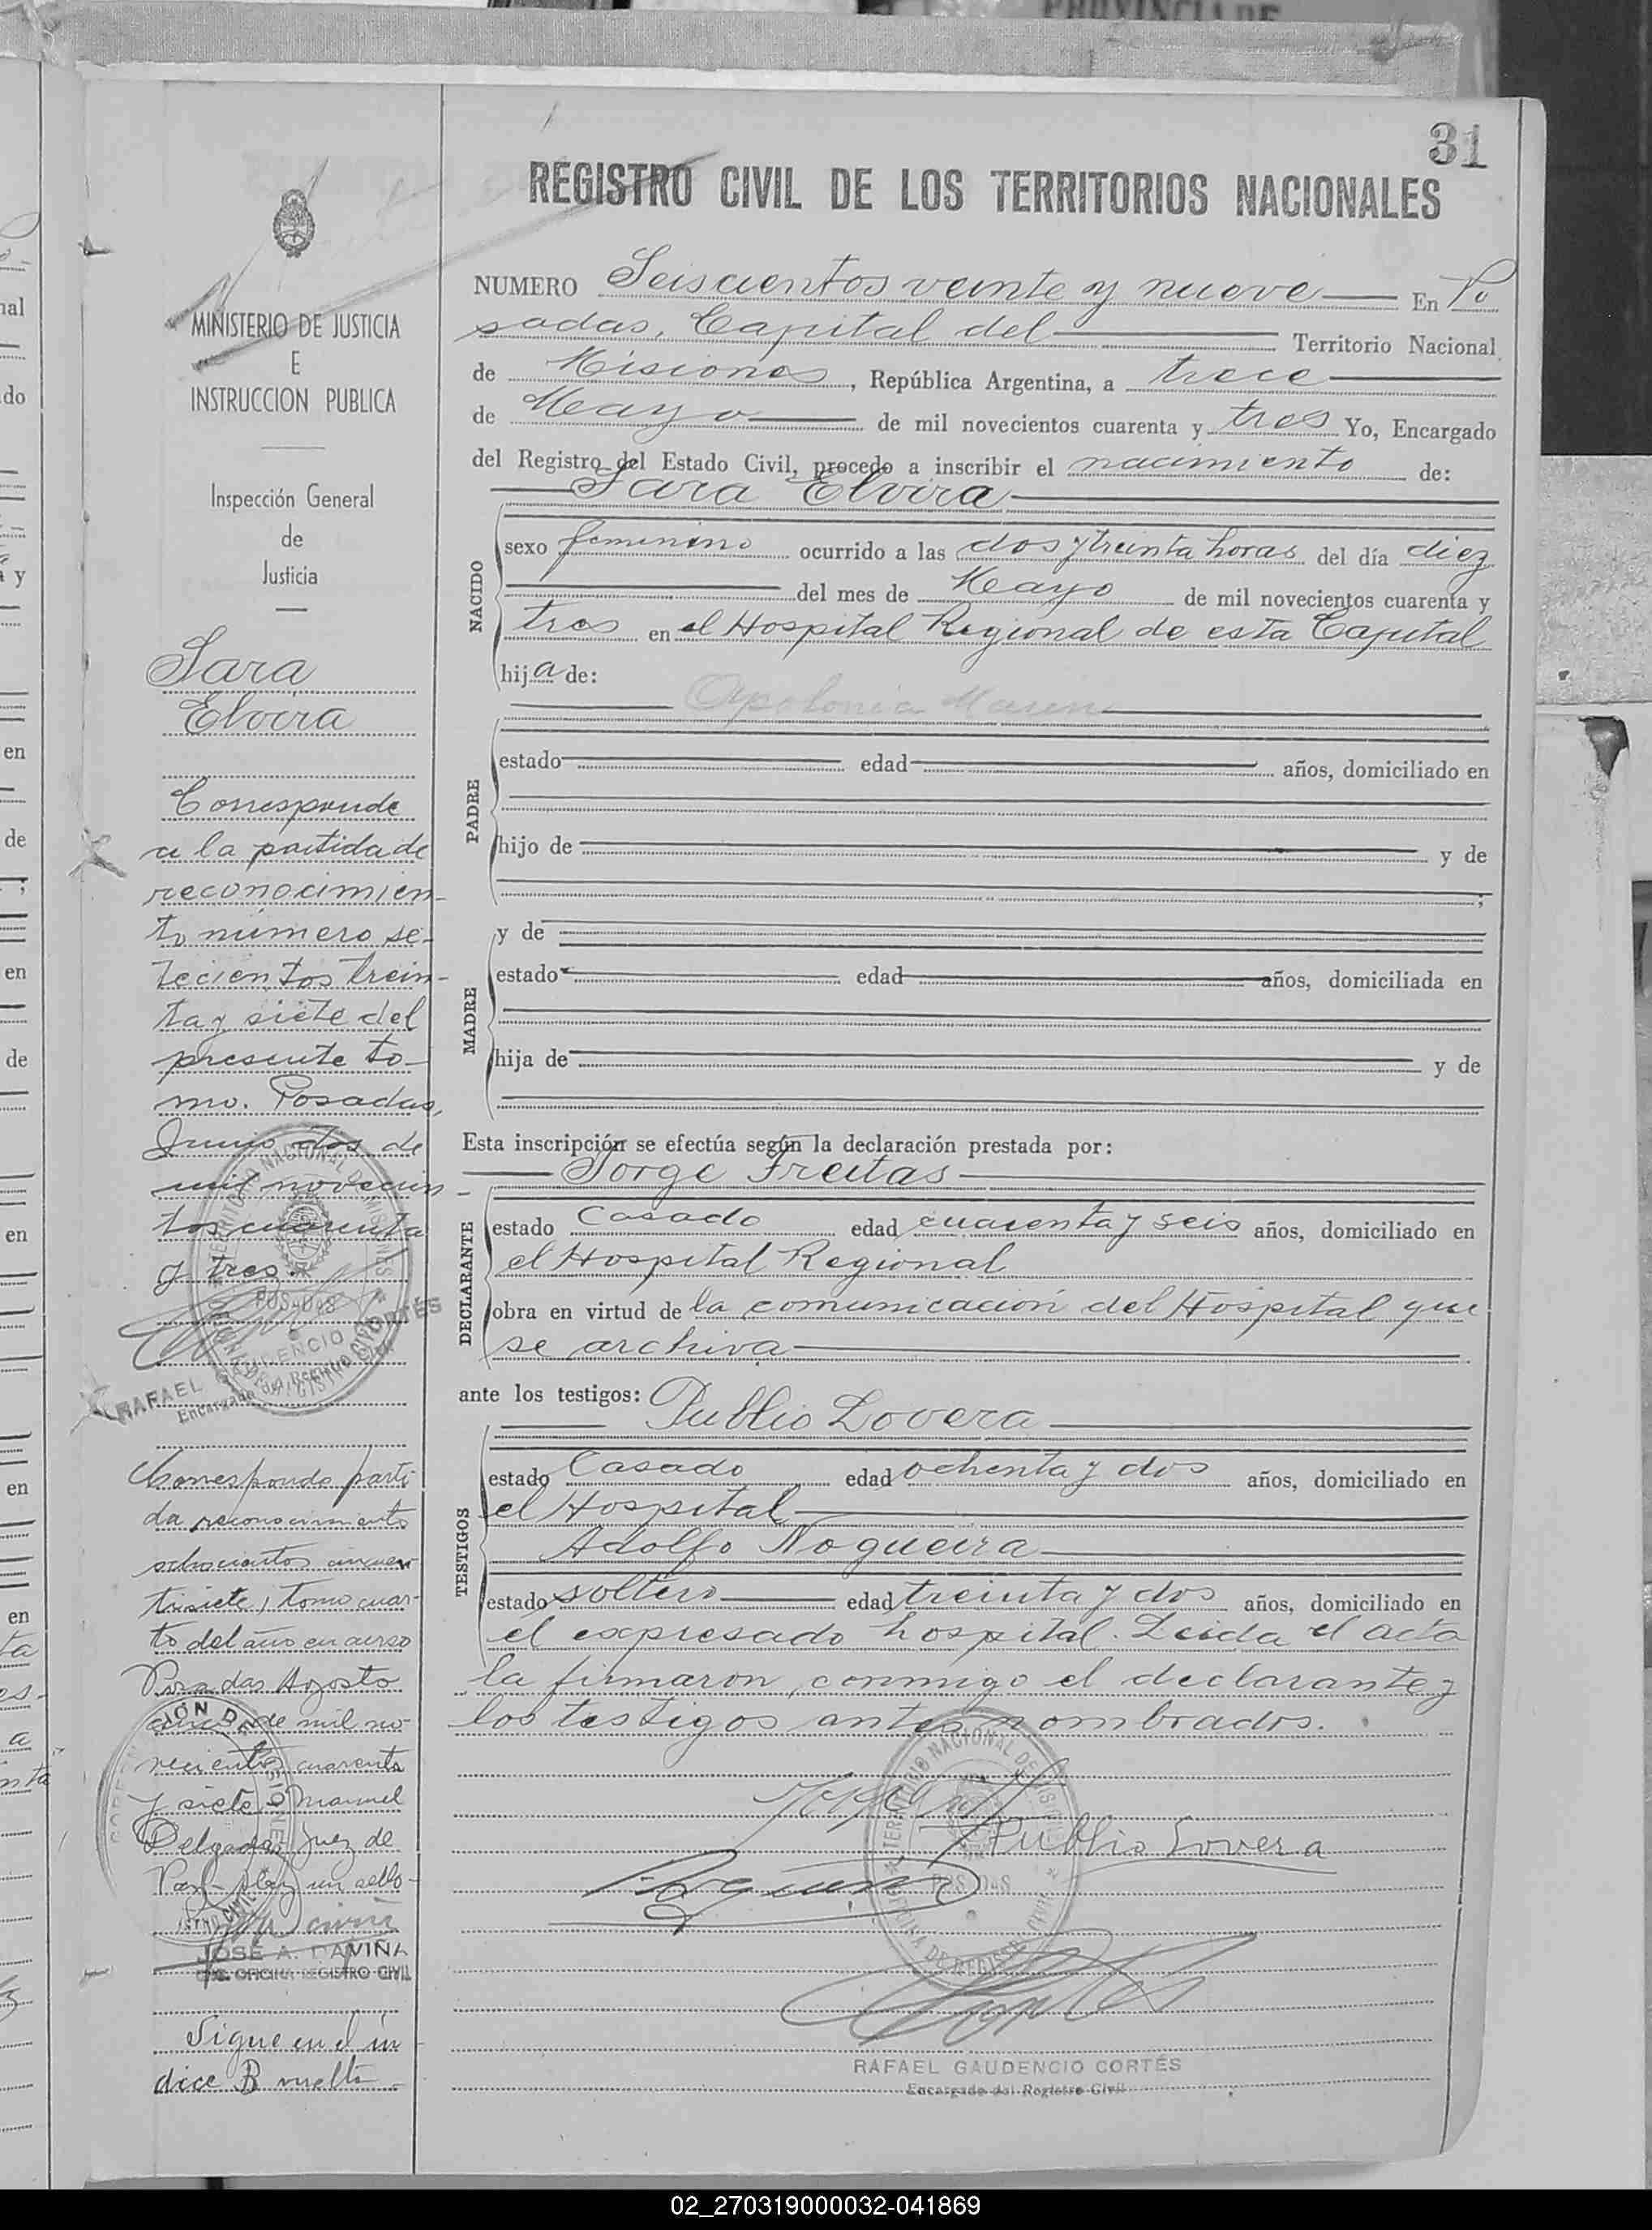 31
REGISTRO CIVIL DE LOS TERRITORIOS NACIONALES
MINISTERIO DE JUSTICIA
E
INSTRUCCION PUBLICA
Inspección General
de
Justicia
Sara
Elvira
Corresponde
a la partida de
reconocimien-
to número se-
tecientos trein-
ta y siete del
presente to-
mo. Posadas,
Junio dos de
mil novecien-
tos cuarenta
y tres.
RAFAEL GAUDENCIO CORTÉS
Encargado del Registro Civil
Corresponde parti-
da reconocimiento
ochocientos cincuen-
tisiete, tomo cuar-
to del año en curso
Posadas Agosto
de mil no-
vecientos cuarenta
y siete Manuel
Delgado, Juez de
Paz- un sello
JOSÉ A. DAVIÑA
ENC. OFICINA REGISTRO CIVIL
Sigue en el ín-
dice B vuelta
NUMERO Seiscientos veinte y nueve En Po
sadas, Capital del Territorio Nacional
de Misiones, República Argentina, a trece
de Mayo de mil novecientos cuarenta y tres Yo, Encargado
del Registro del Estado Civil, procedo a inscribir el nacimiento de:
Sara Elvira
NACIDO
sexo femenino ocurrido a las dos y treinta horas del día diez
del mes de Mayo de mil novecientos cuarenta y
tres en el Hospital Regional de esta Capital
hija de:
Apolonia
PADRE
estado edad años, domiciliado en
hijo de y de
;
MADRE
y de
estado edad años, domiciliada en
hija de y de
Esta inscripción se efectúa según la declaración prestada por:
Jorge Freitas
DECLARANTE
estado Casado edad cuarenta y seis años, domiciliado en
el Hospital Regional
obra en virtud de la comunicación del Hospital que
se archiva
ante los testigos:
Publio Lovera
TESTIGOS
estado Casado edad ochenta y dos años, domiciliado en
el Hospital
Adolfo Nogueira
estado soltero edad treinta y dos años, domiciliado en
el expresado hospital. Leida el acta
la firmaron conmigo el declarante y
los testigos antes nombrados.
Publio Lovera
RAFAEL GAUDENCIO CORTÉS
Encargado del Registro Civil
02_270319000032-041869